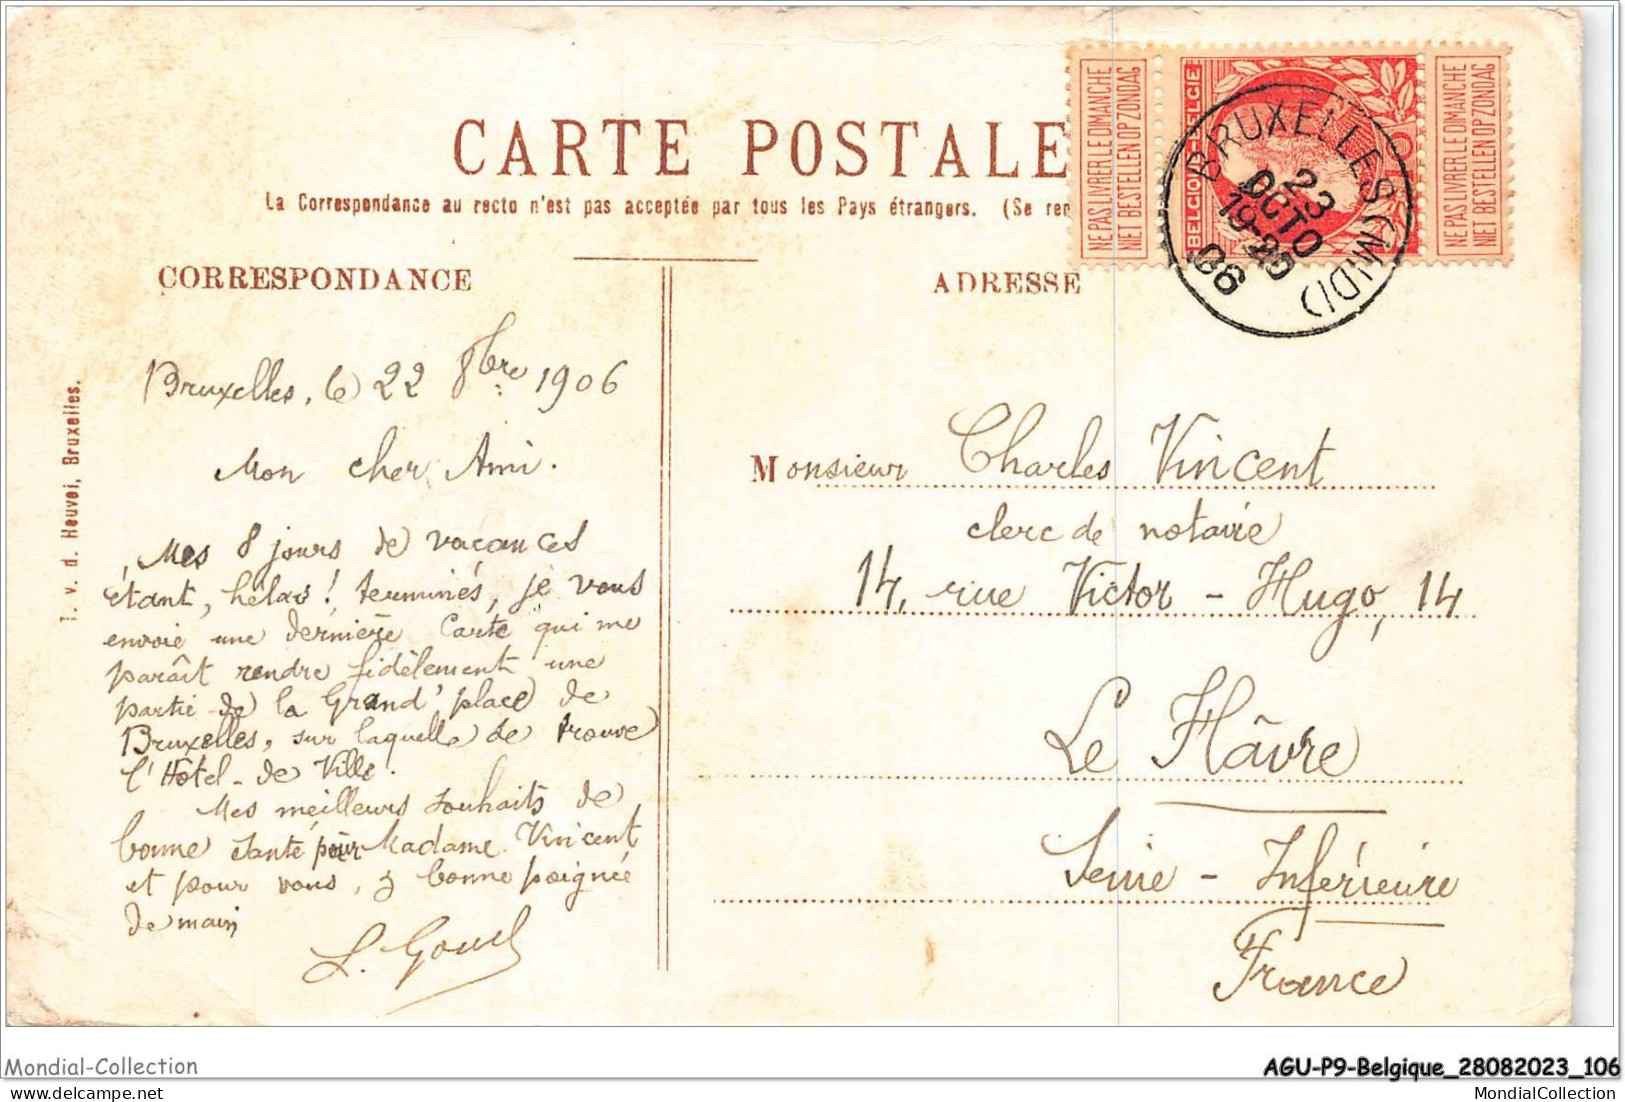 CARTE POSTALE
La Correspondance au recto n'est pas acceptée par tous les Pays étrangers. (Se ren
NE PAS LIVRER LE DIMANCHE
NIET BESTELLEN OP ZONDAG
BELGIQUE-BELGIE
NE PAS LIVRER LE DIMANCHE
NIET BESTELLEN OP ZONDAG
BRUXELLES (MIDI)
23
OCTO
19-20
06
CORRESPONDANCE
ADRESSE
T. v. d. Heuvel, Bruxelles.
Bruxelles, le 22 8bre 1906
Mon cher Ami.
Mes 8 jours de vacances
étant, hélas! terminés, je vous
envoie une dernière Carte qui me
paraît rendre fidèlement une
partie de la Grand' place de
Bruxelles, sur laquelle se trouve
l'Hôtel-de Ville.
Mes meilleurs souhaits de
bonne santé pour Madame Vincent
et pour vous, & bonne poignée
de main
Monsieur Charles Vincent
clerc de notaire
14, rue Victor-Hugo, 14
Le Hâvre
Seine-Inférieure
France
Mondial-Collection
AGU-P9-Belgique_28082023_106
MondialCollection